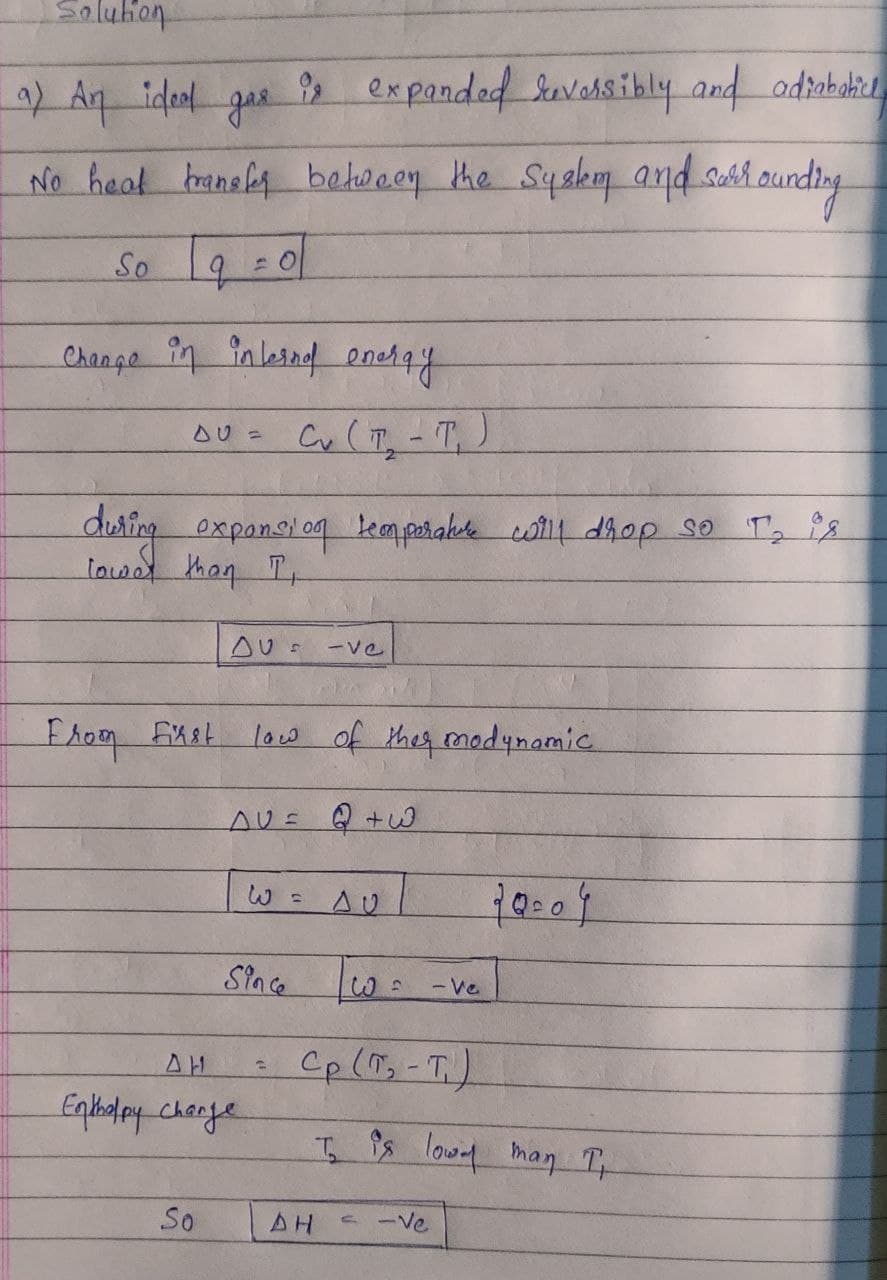 Solution
a) An ideal gas is expanded reversibly and adiabatical
No heat transfer between the system and surrounding
So q = 0
Change in internal energy
ΔU = Cv (T₂ - T₁)
during expansion temperature will drop so T₂ is
lower than T₁
ΔU = -ve
From first law of thermodynamic
ΔU = Q + W
W = ΔU {Q=0}
Since W = -ve
ΔH = Cp (T₂ - T₁)
Enthalpy change
T₂ is lower than T₁
So ΔH = -ve